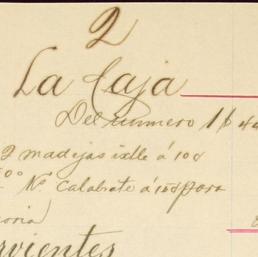 2
La Caja
Del numero 16
2 madejas ixtle á 100
No Calabrote á 150 para
rvientes